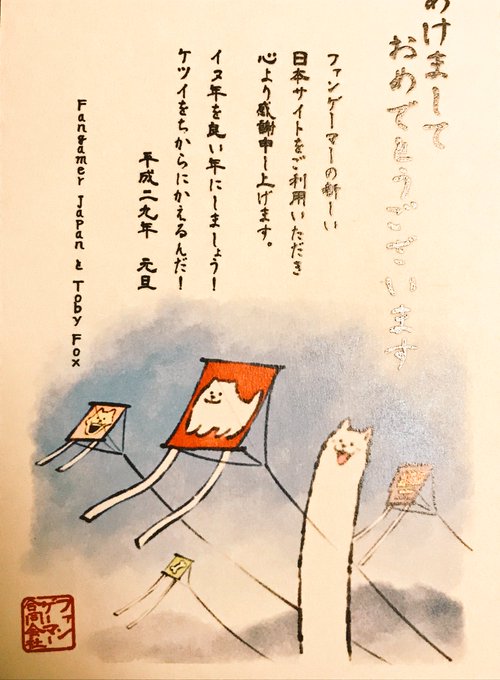 あけまして
おめでとうございます
ファンゲーマーの新しい
日本サイトをご利用いただき
心より感謝申し上げます。
イヌ年を良い年にしましょう!
ケツイをちからにかえるんだ!
平成二九年 元旦
Fangamer Japan と Toby Fox
ファン
ゲーマー
合同会社